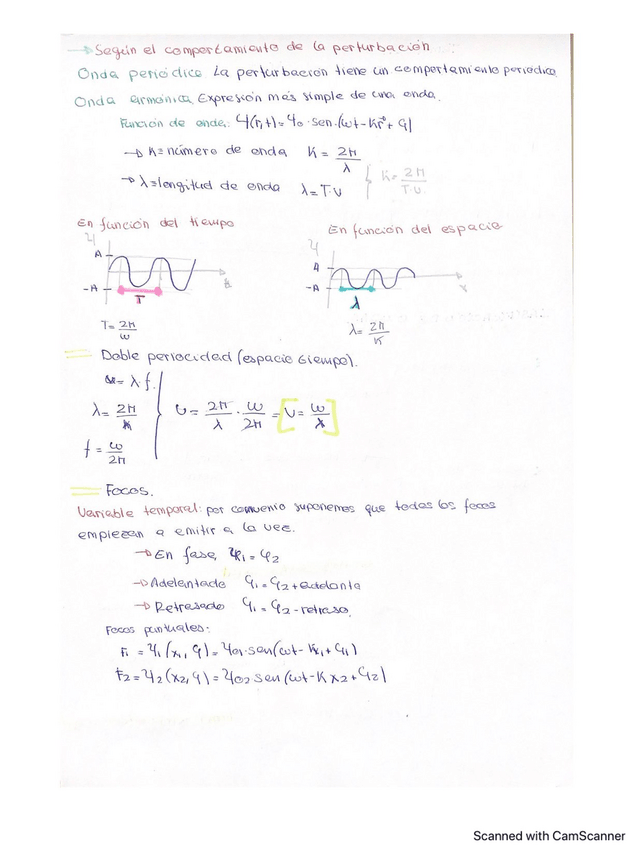 → Según el comportamiento de la perturbación
Onda periódica La perturbación tiene un comportamiento periódico
Onda armónica Expresión más simple de una onda.
Función de onda: Ψ(r,t)=Ψ0·sen(ωt-Kr+φ)
→ K=número de onda K = 2π/λ
→ λ=longitud de onda λ=T·v { K= 2π/T·v
En función del tiempo
Ψ
A
-A
T
t
T= 2π/ω
En función del espacio
Ψ
A
-A
λ
x
λ= 2π/K
Doble periocidad (espacio tiempo).
v= λ·f.
λ= 2π/K
f= ω/2π
v= 2π/λ · ω/2π = [v= ω/λ]
Focos.
Variable temporal: por convenio suponemos que todos los focos
empiezan a emitir a la vez.
→ En fase, φ1=φ2
→ Adelantado φ1=φ2+adelanto
→ Retrasado φ1=φ2-retraso
Focos puntuales:
F1 = Ψ1(x1,φ)=Ψ01·sen(ωt-Kx1+φ1)
F2=Ψ2(x2,φ)=Ψ02 sen(ωt-Kx2+φ2)
Scanned with CamScanner